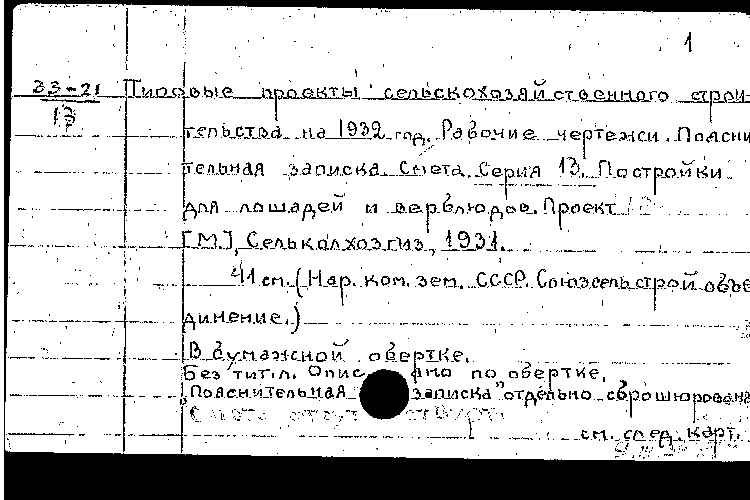 1
33-21 Типовые проекты сельскохозяйственного строи-
13 тельства на 1932 год. Рабочие чертежи. Поясни
тельная записка. Смета. Серия 13. Постройки
для лошадей и верблюдов. Проект
[М.], Сельколхозгиз, 1931.
41 см. (Нар. ком. зем. СССР. Союзсельстрой объе
динение.)
В бумажной обертке.
Без тит. л. Описано по обертке.
"Пояснительная записка" отдельно сброшюрована
Смета отсутствует
см. след. карт.